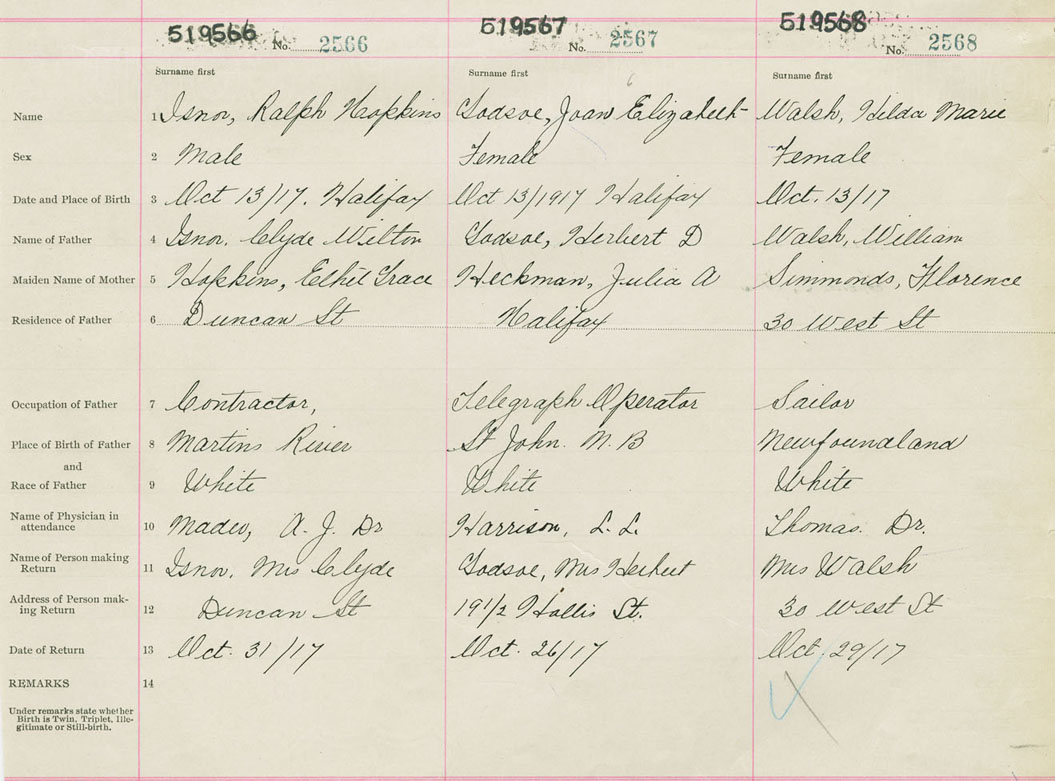 519566 No. 2566 519567 No. 2567 519568 No. 2568
Surname first Surname first Surname first
Name 1 Isnor, Ralph Hopkins Godsoe, Joan Elizabeth Walsh, Hilda Marie
Sex 2 Male Female Female
Date and Place of Birth 3 Oct 13/17. Halifax Oct 13/1917 Halifax Oct. 13/17
Name of Father 4 Isnor. Clyde Wilton Godsoe, Herbert D Walsh, William
Maiden Name of Mother 5 Hopkins, Ethel Grace Heckman, Julia A Simmonds, Florence
Residence of Father 6 Duncan St Halifax 30 West St
Occupation of Father 7 Contractor, Telegraph Operator Sailor
Place of Birth of Father 8 Martins River St John. N.B Newfoundland
and
Race of Father 9 White White White
Name of Physician in
attendance 10 Mader, A. J. Dr Harrison, L. L. Thomas. Dr.
Name of Person making
Return 11 Isnor. Mrs Clyde Godsoe, Mrs Herbert Mrs Walsh
Address of Person mak-
ing Return 12 Duncan St 191/2 Hollis St. 30 West St
Date of Return 13 Oct. 31/17 Oct. 26/17 Oct. 29/17
REMARKS 14
Under remarks state whether
Birth is Twin, Triplet, Ille-
gitimate or Still-birth.